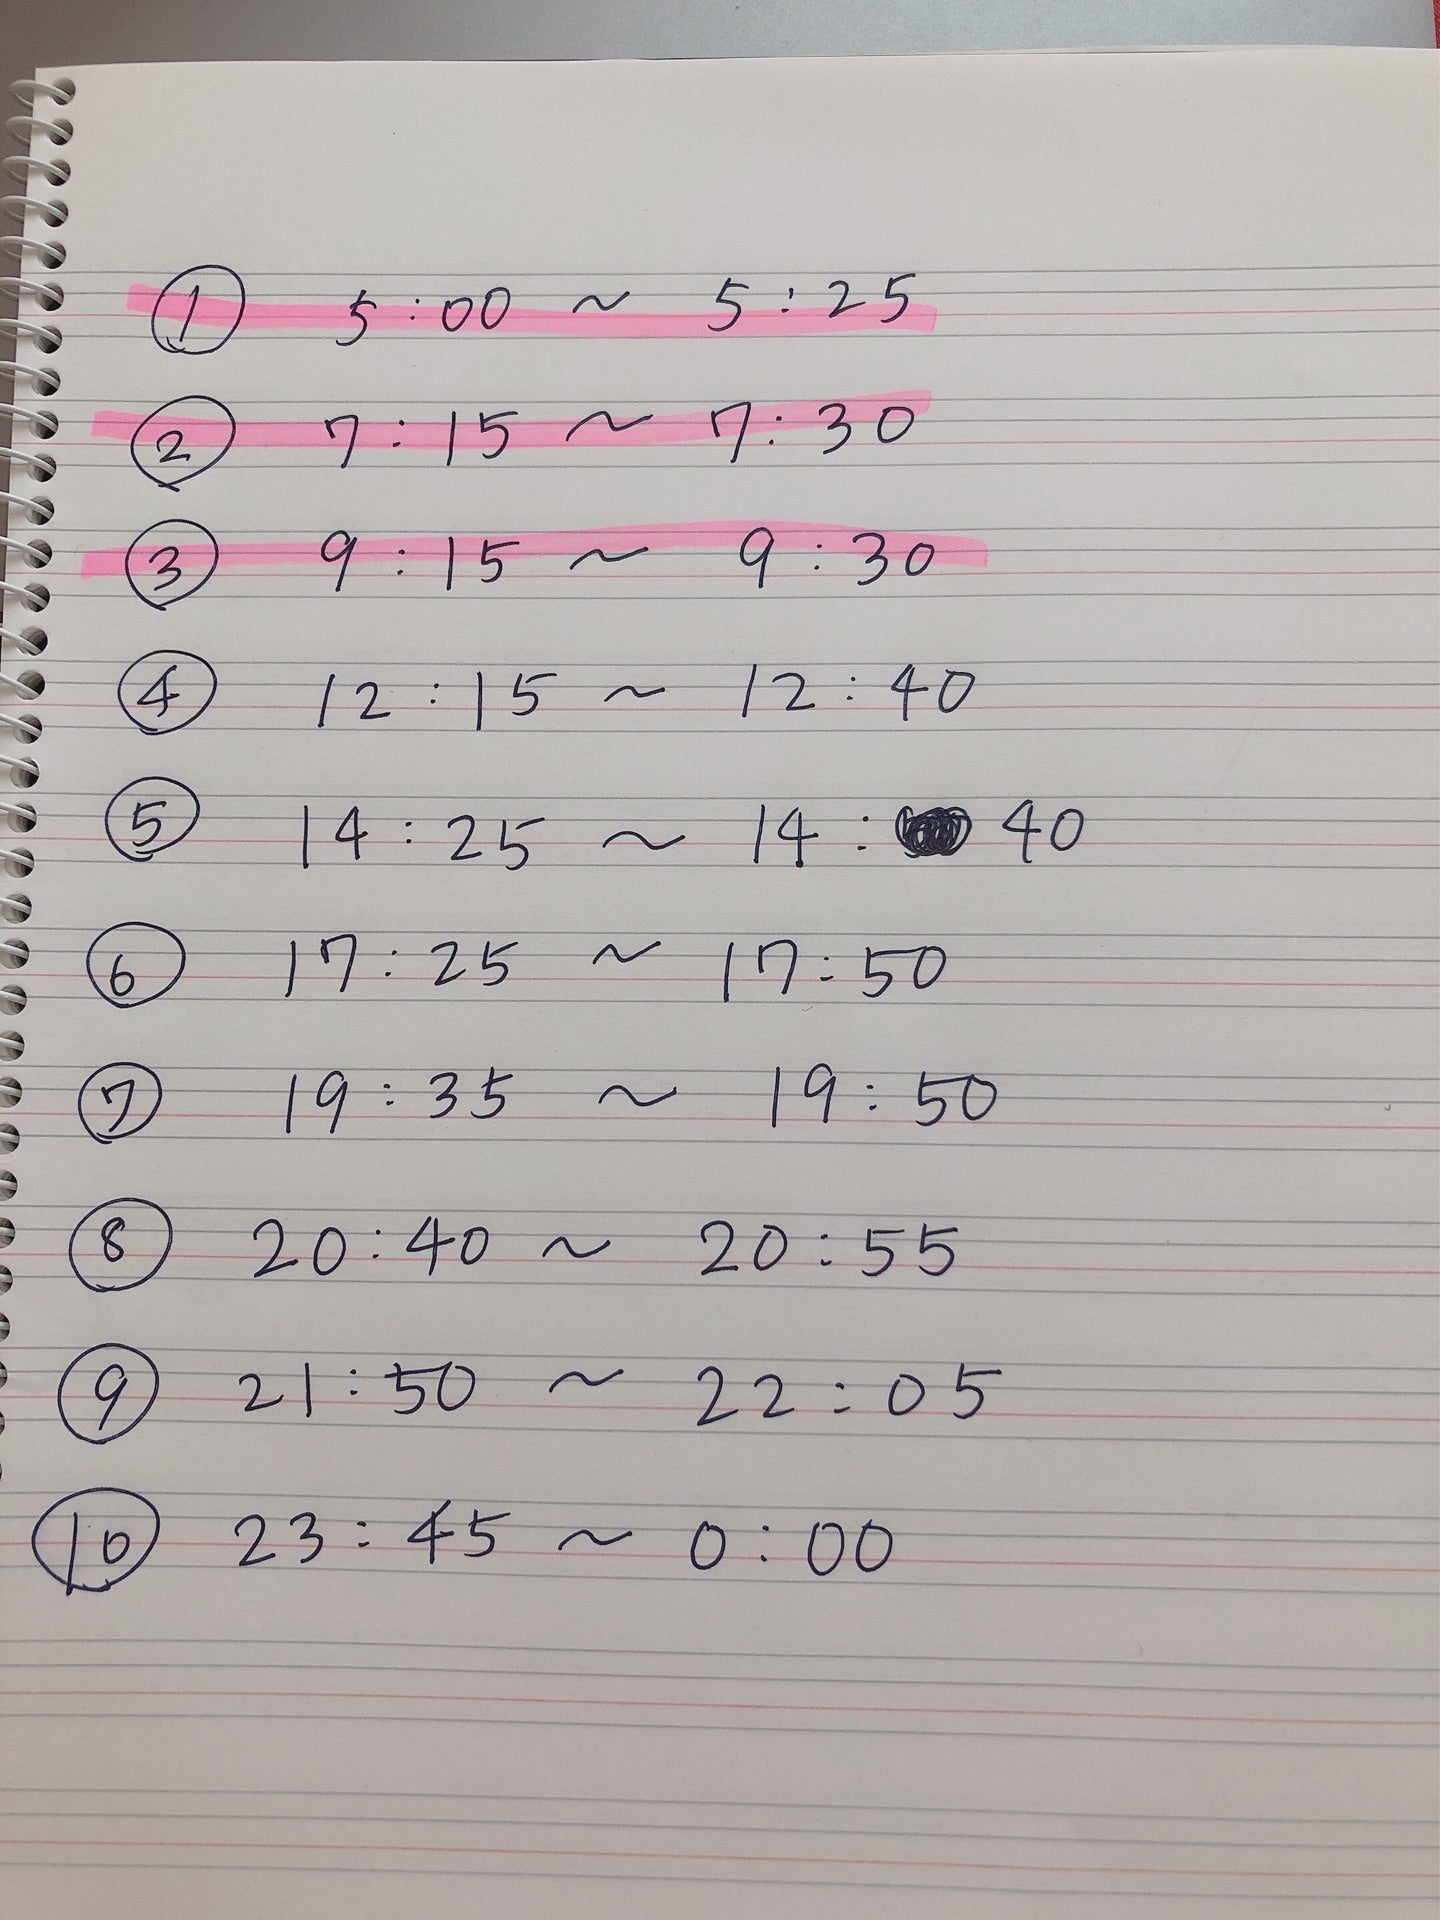 ① 5:00 ~ 5:25
② 7:15 ~ 7:30
③ 9:15 ~ 9:30
④ 12:15 ~ 12:40
⑤ 14:25 ~ 14: 40
⑥ 17:25 ~ 17:50
⑦ 19:35 ~ 19:50
⑧ 20:40 ~ 20:55
⑨ 21:50 ~ 22:05
⑩ 23:45 ~ 0:00